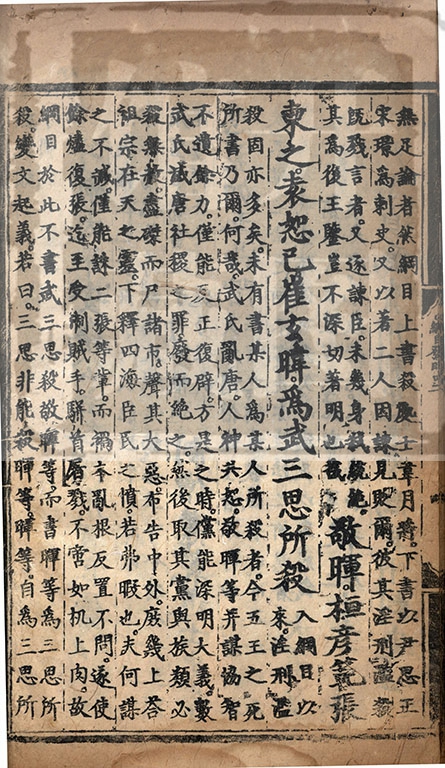 無足論者然綱目上書殺處士韋月將下書以尹思正
宋璟爲刺史又以著二人因諫見貶爾彼其淫刑濫殺
旣戮言者又逐諫臣未幾身殺絶
其爲後王鑒豈不深切著明也哉
敬暉桓彦範張
柬之袁恕已崔玄暐爲武三思所殺
入綱目以
來淫刑濫
殺固亦多矣未有書某人爲某人所殺者今五王之死
所書乃爾何哉武氏亂唐人神共怒敬暉等并謀協智
不遺餘力僅能反正復辟方是之時儻能深明大義數
武氏滅唐社稷之罪廢而絶之然後取其黨與族類必
殺無赦盡磔而尸諸市聲其大惡布告中外庶幾上荅
祖宗在天之靈下釋四海臣民之憤若弗暇也夫何謀
之不誠僅能誅二張等輩而禍本亂根反置不問遂使
餘燼復張迄至受制賊手駢首屠戮不啻如机上肉故
綱目於此不書武三思殺敬暉等而書暉等爲三思所
殺變文起義若曰三思非能殺暉等暉等自爲三思所